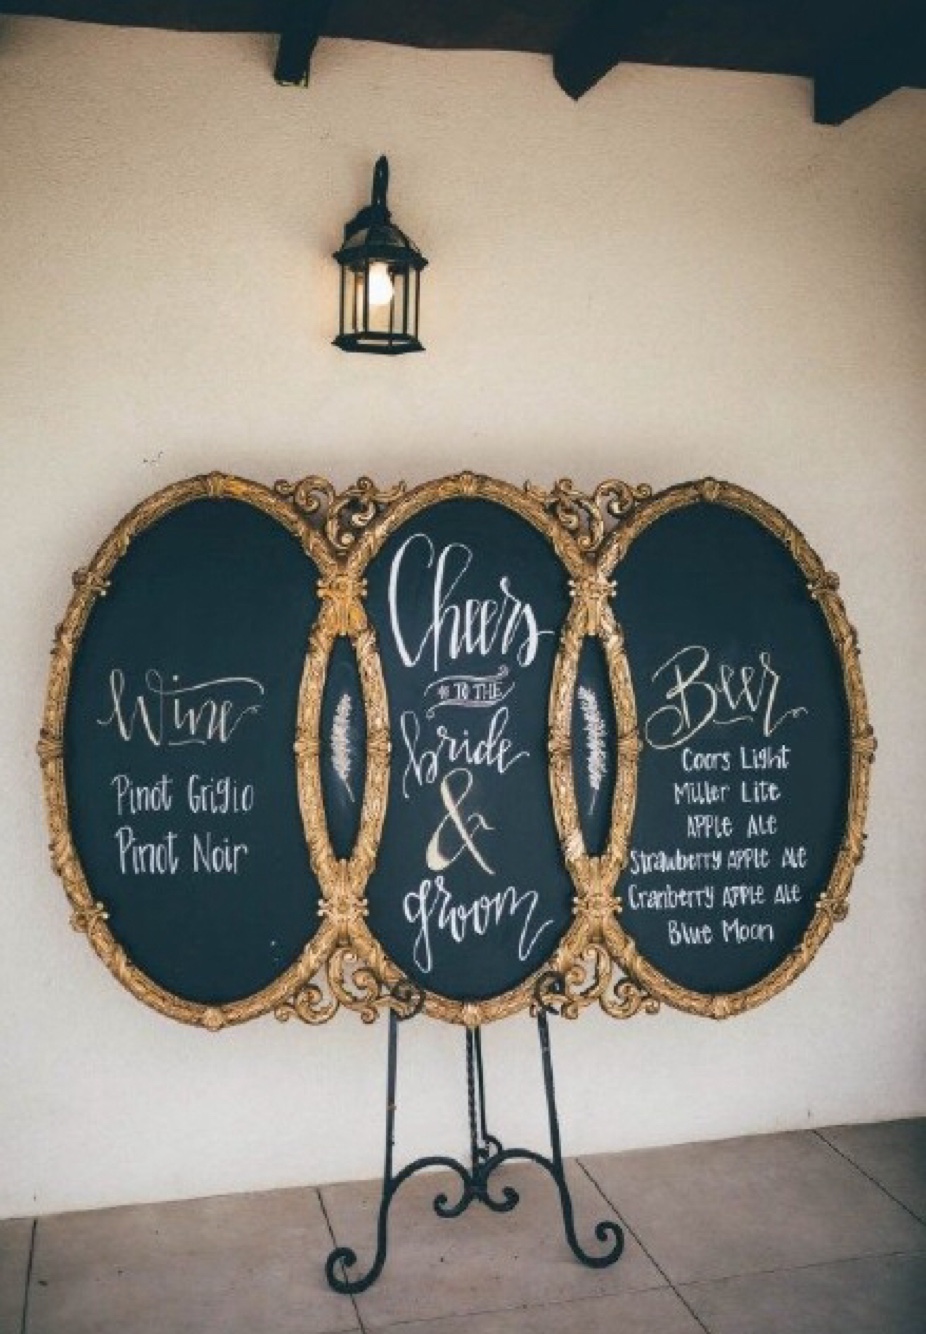 Wine
Pinot Grigio
Pinot Noir
Cheers
TO THE
bride
&
groom
Beer
Coors Light
Miller Lite
APPLE ALE
Strawberry APPLE ALE
Cranberry APPLE ALE
Blue Moon